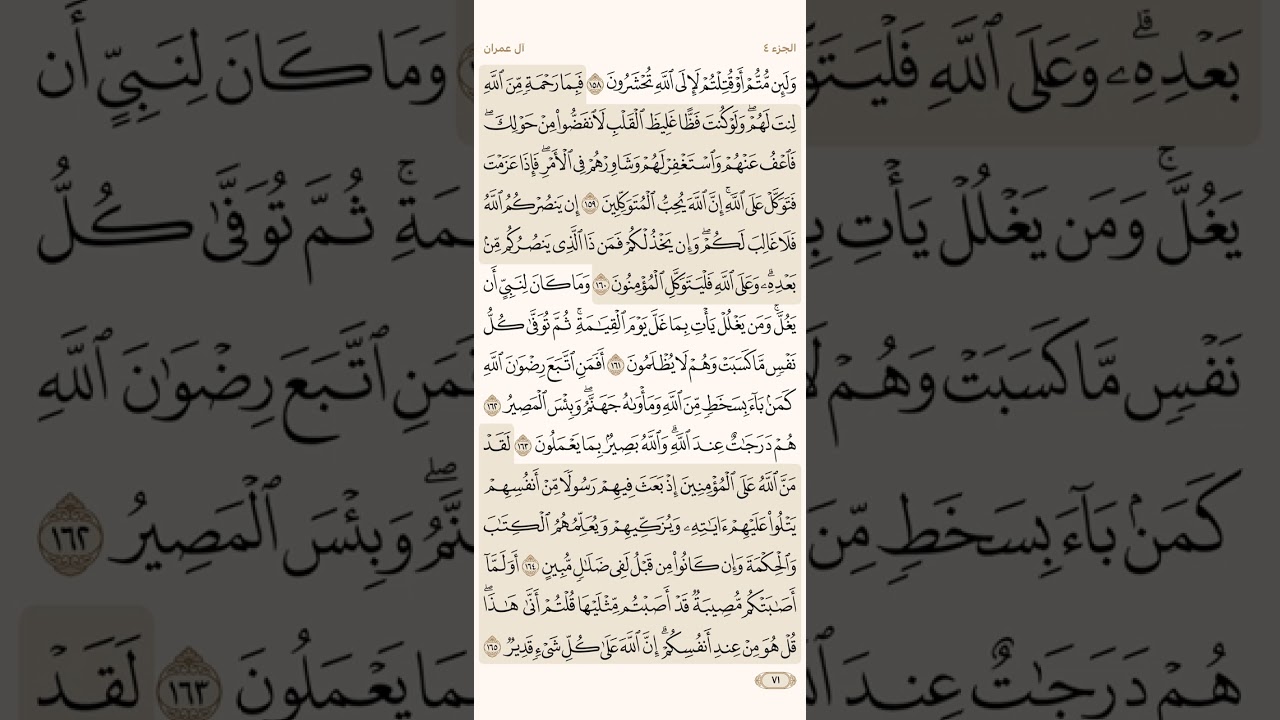 الجزء ٤
آل عمران
وَلَئِن مُّتُّمۡ أَوۡ قُتِلۡتُمۡ لَإِلَى ٱللَّهِ تُحۡشَرُونَ ١٥٨ فَبِمَا رَحۡمَةٖ مِّنَ ٱللَّهِ
لِنتَ لَهُمۡۖ وَلَوۡ كُنتَ فَظًّا غَلِيظَ ٱلۡقَلۡبِ لَٱنفَضُّواْ مِنۡ حَوۡلِكَۖ
فَٱعۡفُ عَنۡهُمۡ وَٱسۡتَغۡفِرۡ لَهُمۡ وَشَاوِرۡهُمۡ فِي ٱلۡأَمۡرِۖ فَإِذَا عَزَمۡتَ
فَتَوَكَّلۡ عَلَى ٱللَّهِۚ إِنَّ ٱللَّهَ يُحِبُّ ٱلۡمُتَوَكِّلِينَ ١٥٩ إِن يَنصُرۡكُمُ ٱللَّهُ
فَلَا غَالِبَ لَكُمۡۖ وَإِن يَخۡذُلۡكُمۡ فَمَن ذَا ٱلَّذِي يَنصُرُكُم مِّنۢ
بَعۡدِهِۦۗ وَعَلَى ٱللَّهِ فَلۡيَتَوَكَّلِ ٱلۡمُؤۡمِنُونَ ١٦٠ وَمَا كَانَ لِنَبِيٍّ أَن
يَغُلَّۚ وَمَن يَغۡلُلۡ يَأۡتِ بِمَا غَلَّ يَوۡمَ ٱلۡقِيَٰمَةِۚ ثُمَّ تُوَفَّىٰ كُلُّ
نَفۡسٖ مَّا كَسَبَتۡ وَهُمۡ لَا يُظۡلَمُونَ ١٦١ أَفَمَنِ ٱتَّبَعَ رِضۡوَٰنَ ٱللَّهِ
كَمَنۢ بَآءَ بِسَخَطٖ مِّنَ ٱللَّهِ وَمَأۡوَىٰهُ جَهَنَّمُۖ وَبِئۡسَ ٱلۡمَصِيرُ ١٦٢
هُمۡ دَرَجَٰتٌ عِندَ ٱللَّهِۗ وَٱللَّهُ بَصِيرُۢ بِمَا يَعۡمَلُونَ ١٦٣ لَقَدۡ
مَنَّ ٱللَّهُ عَلَى ٱلۡمُؤۡمِنِينَ إِذۡ بَعَثَ فِيهِمۡ رَسُولٗا مِّنۡ أَنفُسِهِمۡ
يَتۡلُواْ عَلَيۡهِمۡ ءَايَٰتِهِۦ وَيُزَكِّيهِمۡ وَيُعَلِّمُهُمُ ٱلۡكِتَٰبَ
وَٱلۡحِكۡمَةَ وَإِن كَانُواْ مِن قَبۡلُ لَفِي ضَلَٰلٖ مُّبِينٍ ١٦٤ أَوَلَمَّآ
أَصَٰبَتۡكُم مُّصِيبَةٞ قَدۡ أَصَبۡتُم مِّثۡلَيۡهَا قُلۡتُمۡ أَنَّىٰ هَٰذَاۖ
قُلۡ هُوَ مِنۡ عِندِ أَنفُسِكُمۡۗ إِنَّ ٱللَّهَ عَلَىٰ كُلِّ شَيۡءٖ قَدِيرٞ ١٦٥
٧١